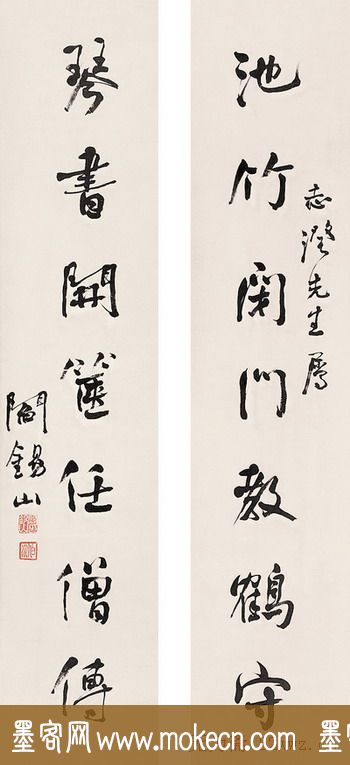 池竹閉門教鶴守
志澄先生屬
琴書開篋任僧傳
閻錫山
墨客网 www.mokecn.com 墨客